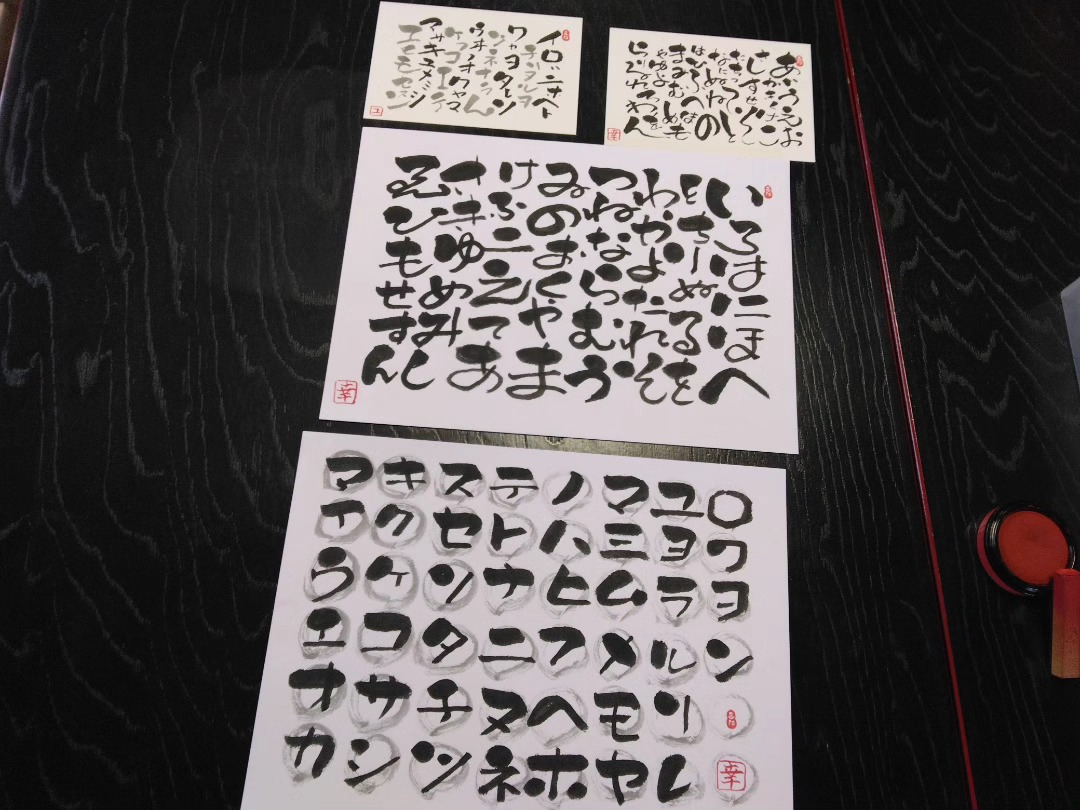 イロハニホヘト
チリヌルヲ
ワカヨタレソ
ツネナラム
ウヰノオクヤマ
ケフコエテ
アサキユメミシ
エヒモセスン
あいうえお
かきくけこ
さしすせそ
たちつてと
なにぬねの
はひふへほ
まみむめも
やゆよ
らりるれろ
わをん
幸
いろはにほへ
とちりぬるを
わかよたれそ
つねならむう
ゐのおくやま
けふこえてあ
さきゆめみし
ゑひもせすん
幸
アイウエオカ
キクケコサシ
スセソタチツ
テトナニヌネ
ノハヒフヘホ
マミムメモヤ
ユヨラルリレ
ロワヲン
幸